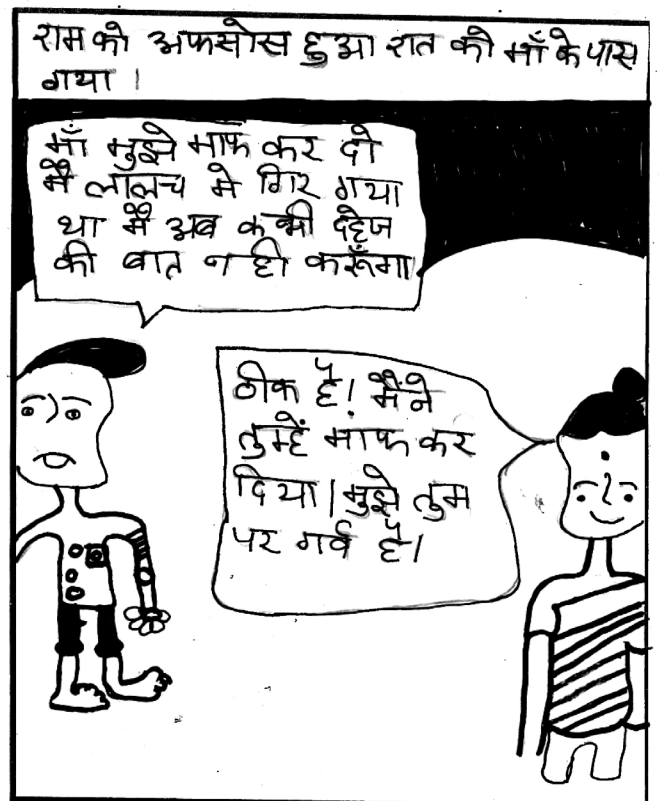 राम को अफसोस हुआ रात को माँ के पास
गया।
माँ मुझे माफ कर दो
मै लालच मे गिर गया
था मै अब कभी दहेज
की बात नही करूँगा
ठीक है। मैंने
तुम्हें माफ कर
दिया। मुझे तुम
पर गर्व है।